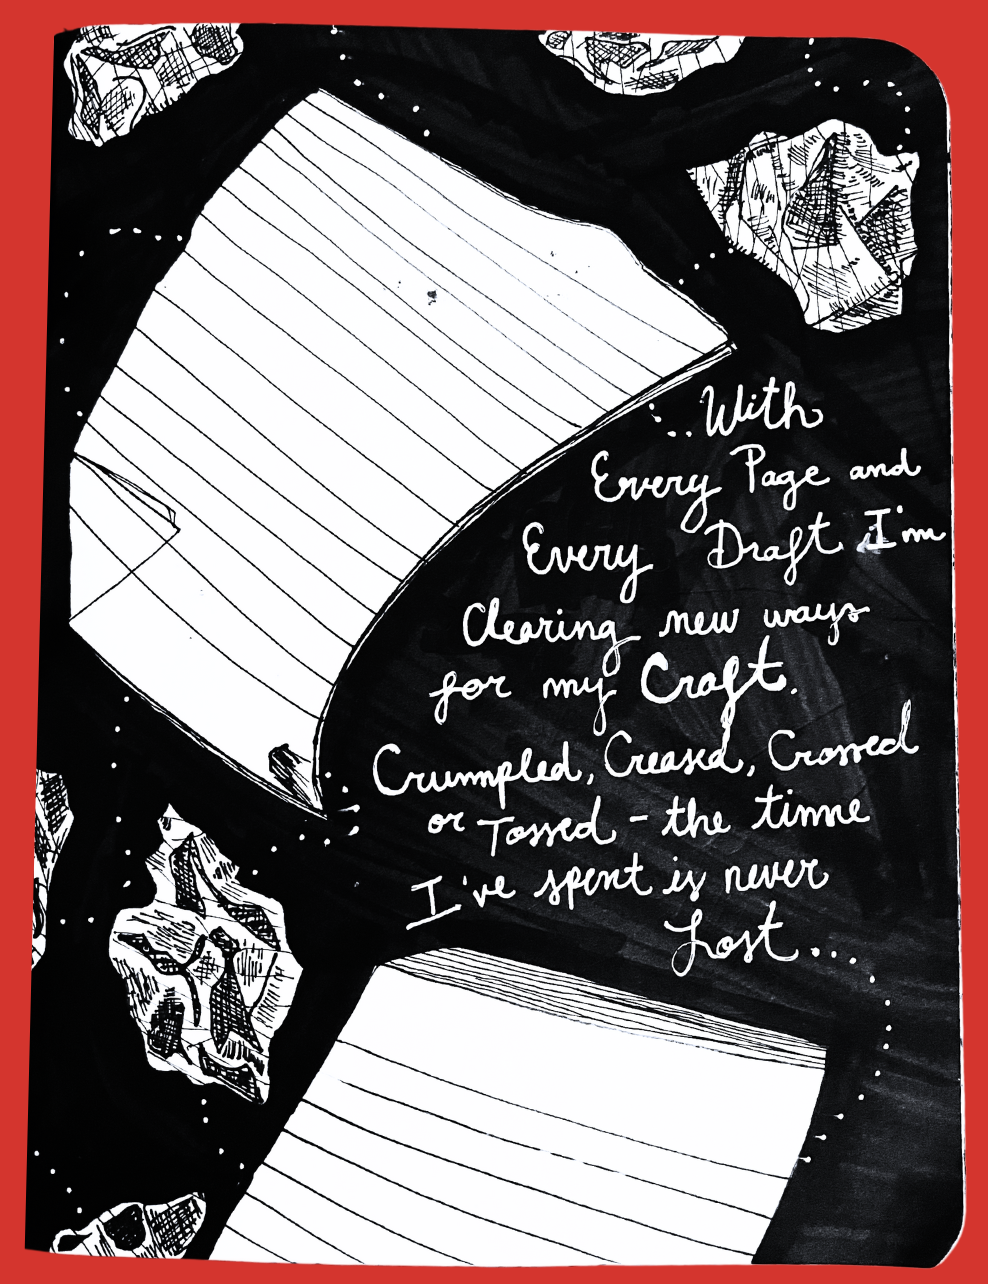 ...With
Every Page and
Every Draft I'm
Clearing new ways
for my Craft.
Crumpled, Creased, Crossed
or Tossed - the time
I've spent is never
Lost...